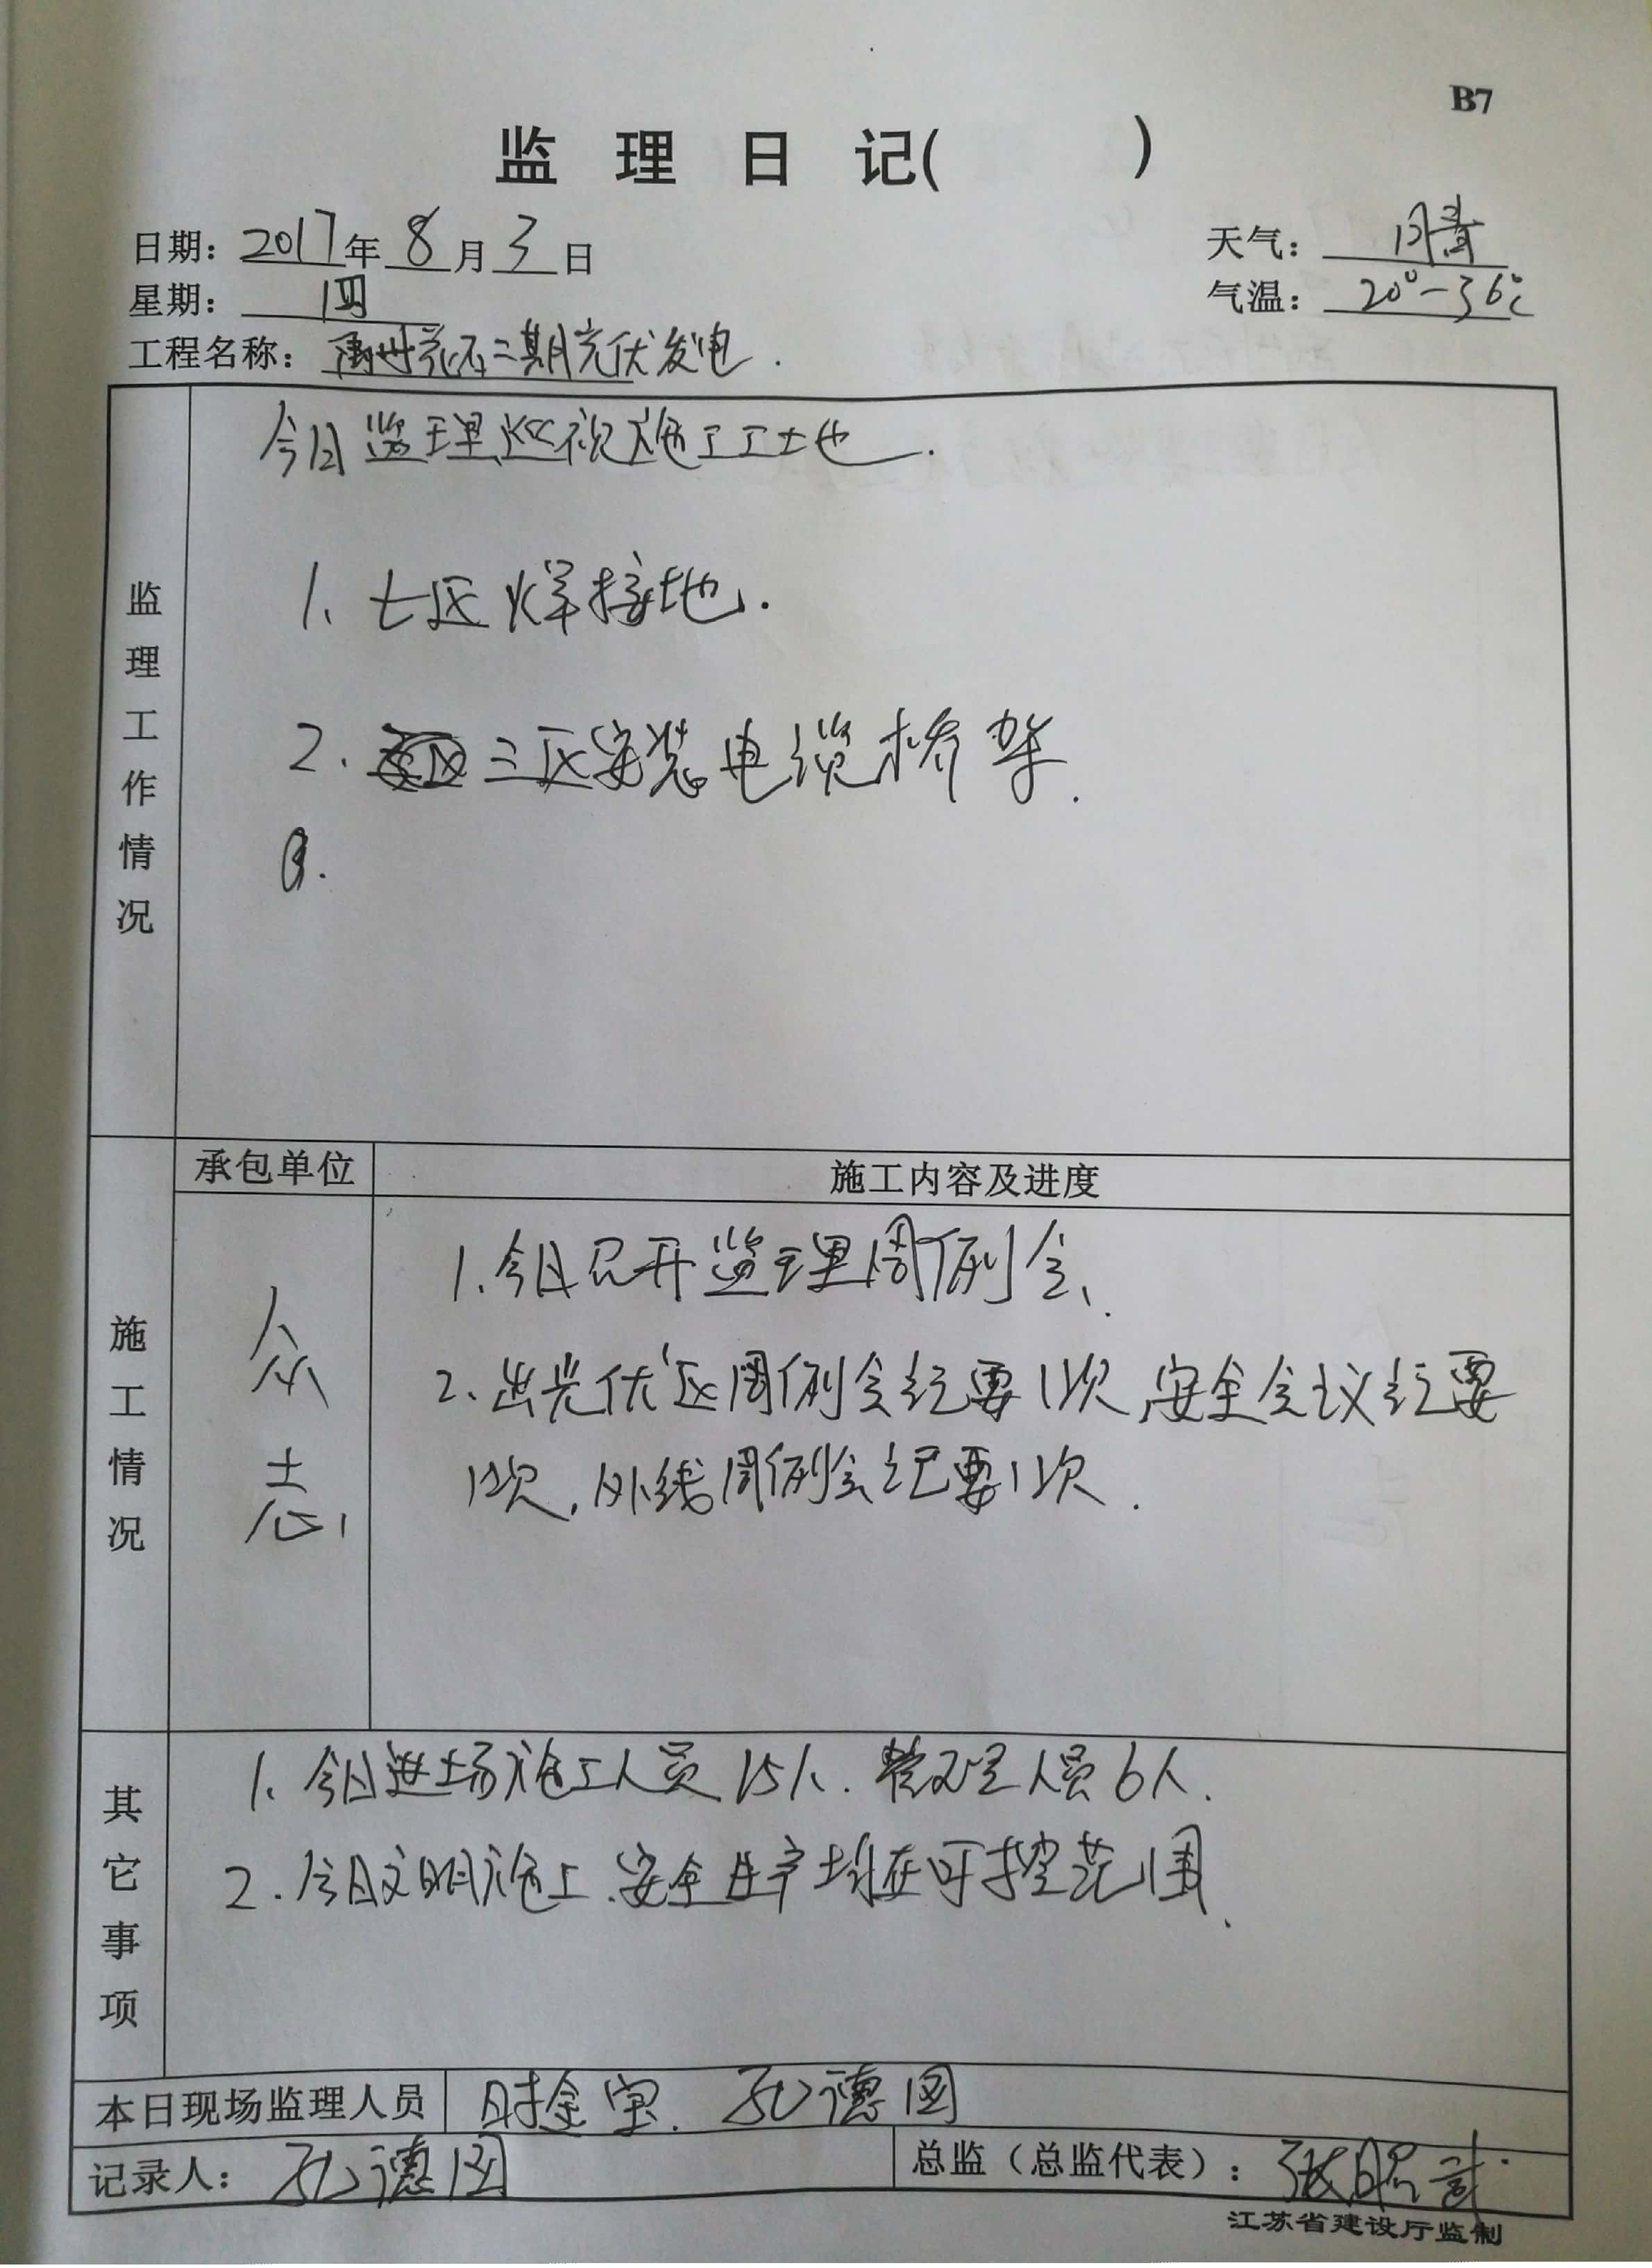 B7
监理日记(          )
日期：2017年8月3日
天气：晴
星期：四
气温：20°-36℃
工程名称：禹州花石二期光伏发电.
监理工作情况
今日监理巡视施工工地.
1、七区焊接地.
2.三区安装电缆桥架.
承包单位
施工内容及进度
施工情况
众志
1.今日召开监理周例会、
2、出光伏区周例会纪要1次,安全会议纪要
1次,外线周例会纪要1次.
其它事项
1、今日进场施工人员15人.管理人员6人.
2.今日文明施工.安全生产均在可控范围、
本日现场监理人员
时金宝.孔德图
记录人：孔德图
总监（总监代表）：张昭武
江苏省建设厅监制